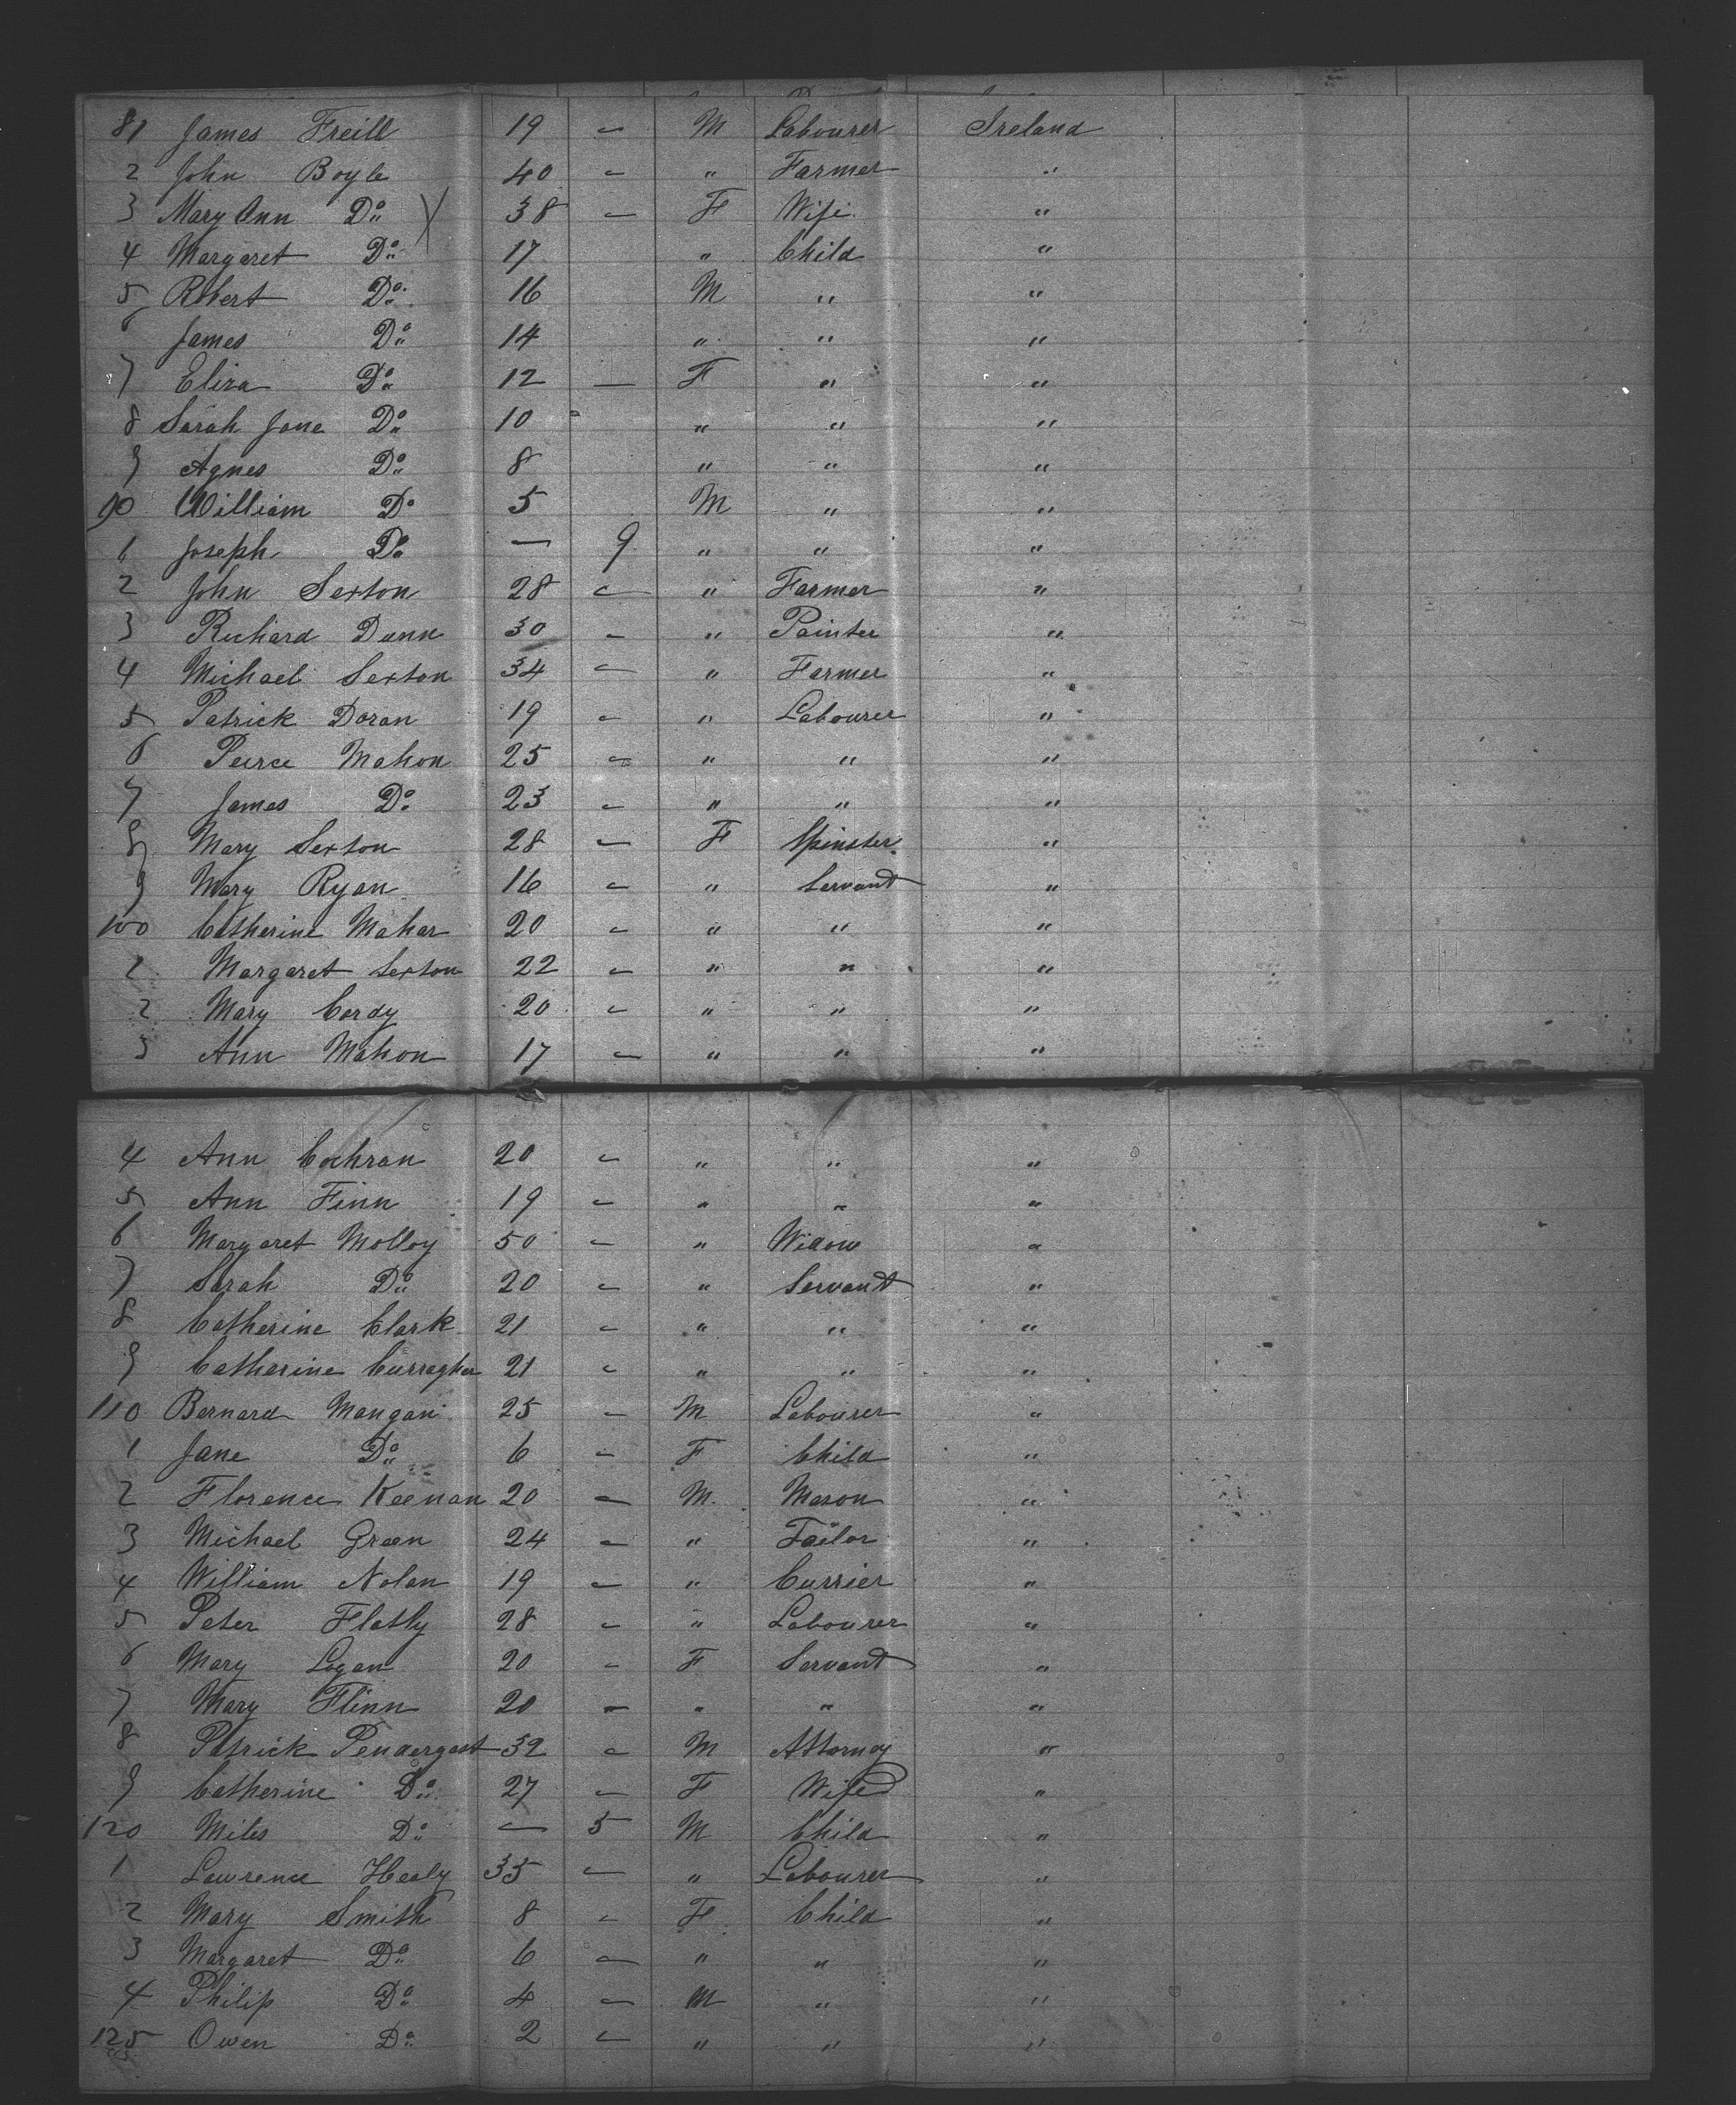 81 James Freill 19 — M Labourer Ireland
2 John Boyle 40 — " Farmer "
3 Mary Ann Do 38 — F Wife "
4 Margaret Do 17 " Child "
5 Robert Do 16 M " "
6 James Do 14 " " "
7 Eliza Do 12 — F " "
8 Sarah Jane Do 10 " " "
9 Agnes Do 8 " " "
90 William Do 5 M " "
1 Joseph Do — 9 " " "
2 John Sexton 28 — " Farmer "
3 Richard Dunn 30 — " Painter "
4 Michael Sexton 34 — " Farmer "
5 Patrick Doran 19 — " Labourer "
6 Peirce Mahon 25 — " " "
7 James Do 23 — " " "
8 Mary Sexton 28 — F Spinster "
9 Mary Ryan 16 — " Servant "
100 Catherine Mahar 20 — " " "
1 Margaret Sexton 22 — " " "
2 Mary Cordy 20 — " " "
3 Ann Mahon 17 — " " "
4 Ann Cochran 20 — " " "
5 Ann Finn 19 — " " "
6 Margaret Molloy 50 — " Widow "
7 Sarah Do 20 — " Servant "
8 Catherine Clark 21 — " " "
9 Catherine Curragher 21 — " " "
110 Bernard Mangan 25 — M Labourer "
1 Jane Do 6 — F Child "
2 Florence Keenan 20 — M Mason "
3 Michael Green 24 — " Tailor "
4 William Nolan 19 — " Currier "
5 Peter Flatly 28 — " Labourer "
6 Mary Logan 20 — F Servant "
7 Mary Flinn 20 — " " "
8 Patrick Pendergast 32 — M Attorney "
9 Catherine Do 27 — F Wife "
120 Miles Do — 5 M Child "
1 Lawrence Healy 35 — " Labourer "
2 Mary Smith 8 — F Child "
3 Margaret Do 6 — " " "
4 Philip Do 4 — M " "
125 Owen Do 2 — " " "